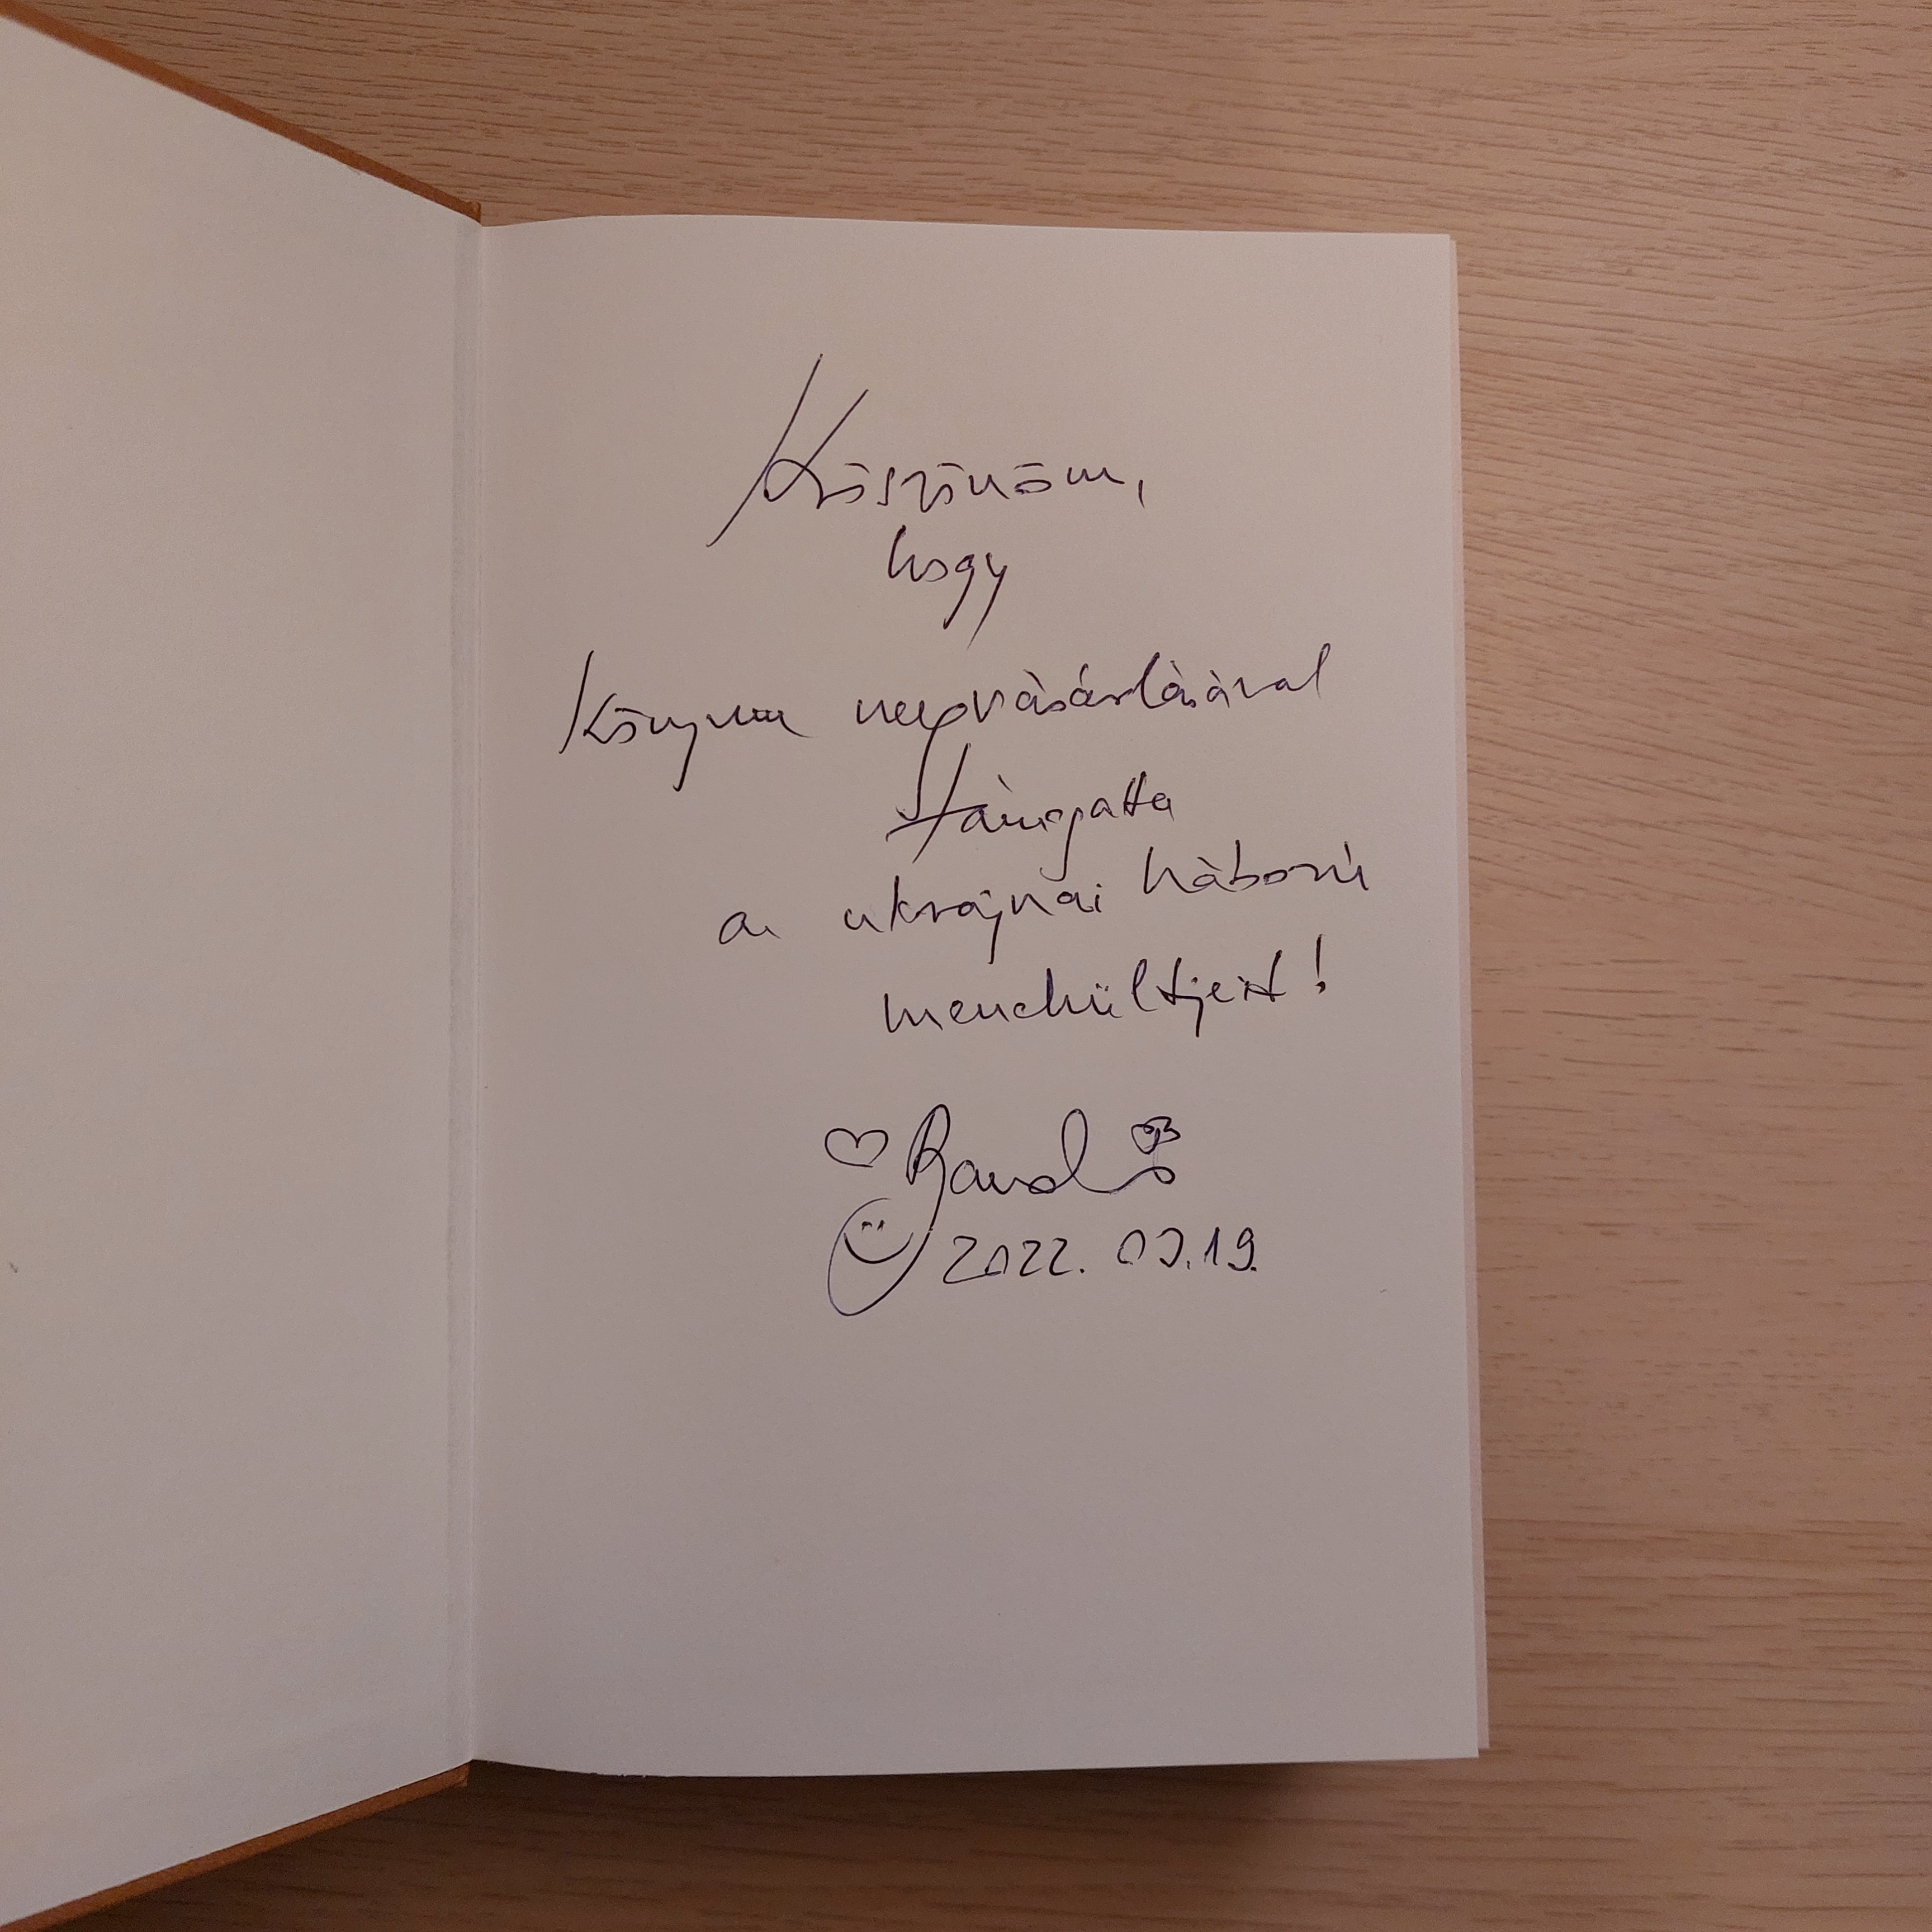 Köszönöm,
hogy
könyvem megvásárlásával
támogatta
az ukrajnai háború
menekültjeit!
2022. 03.19.